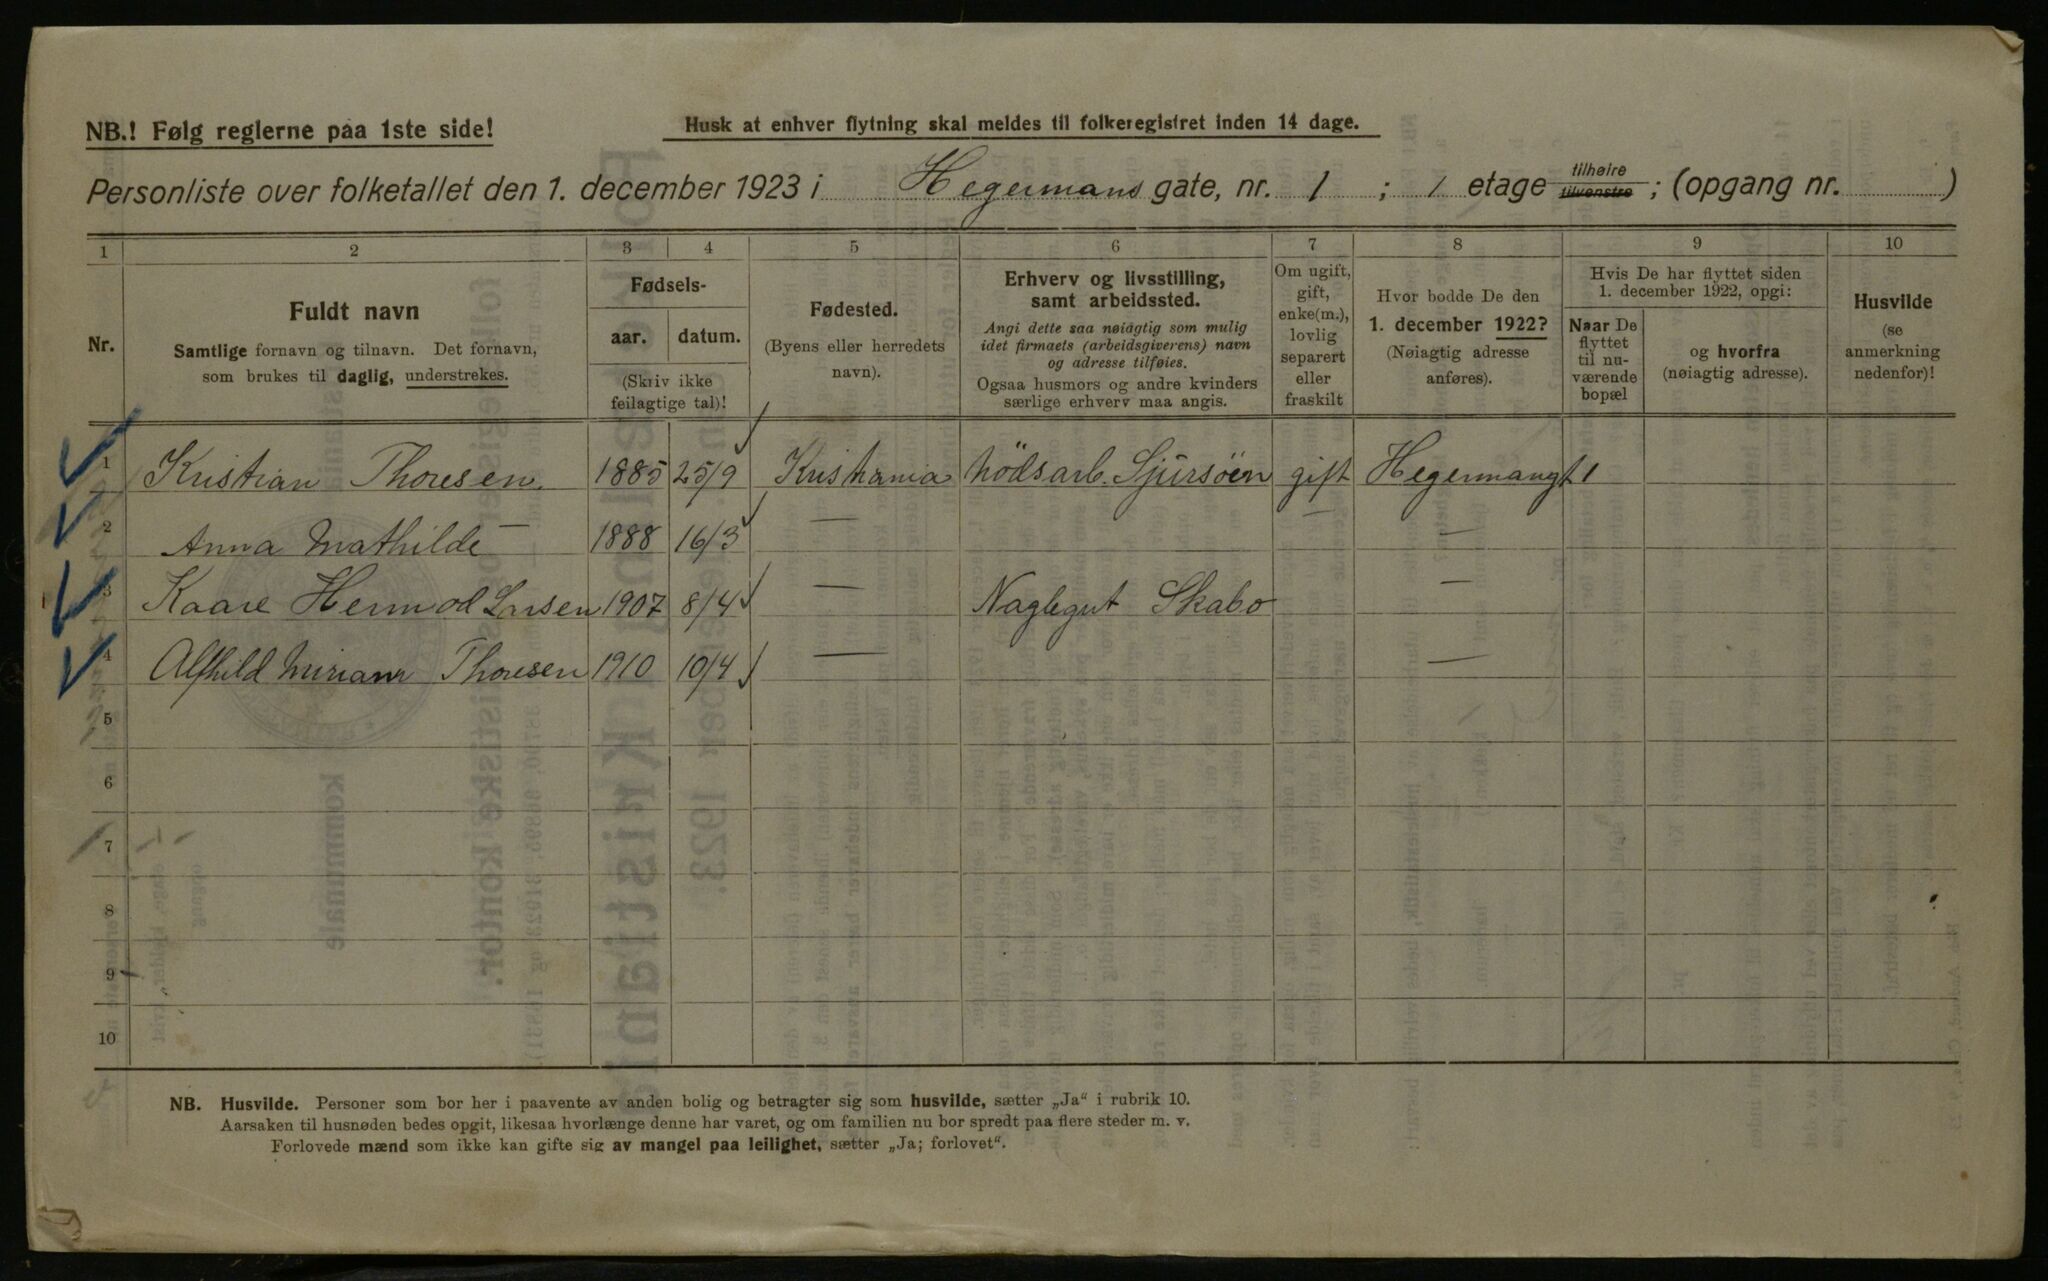 NB.! Følg reglerne paa 1ste side!
Husk at enhver flytning skal meldes til folkeregistret inden 14 dage.
Personliste over folketallet den 1. december 1923 i Hegermans gate, nr. 1 ; 1 etage tilhøire tilvenstre ; (opgang nr. )
1 2 3 4 5 6 7 8 9 10
Nr.
Fuldt navn
Samtlige fornavn og tilnavn. Det fornavn,
som brukes til daglig, understrekes.
Fødsels-
aar. datum.
(Skriv ikke
feilagtige tal)!
Fødested.
(Byens eller herredets
navn).
Erhverv og livsstilling,
samt arbeidssted.
Angi dette saa nøiagtig som mulig
idet firmaets (arbeidsgiverens) navn
og adresse tilføies.
Ogsaa husmors og andre kvinders
særlige erhverv maa angis.
Om ugift,
gift,
enke(m.),
lovlig
separert
eller
fraskilt
Hvor bodde De den
1. december 1922?
(Nøiagtig adresse
anføres).
Hvis De har flyttet siden
1. december 1922, opgi:
Naar De
flyttet
til nu-
værende
bopæl
og hvorfra
(nøiagtig adresse).
Husvilde
(se
anmerkning
nedenfor)!
1 Kristian Thoresen 1885 25/9 Kristiania Nödsarb. Sjursöen gift Hegermangt 1
2 Anna Mathilde — 1888 16/3 — — —
3 Kaare Hermod Larsen 1907 8/4 — Naglegut Skabo —
4 Alfhild Miriam Thoresen 1910 10/4 — —
5
6
7
8
9
10
NB. Husvilde. Personer som bor her i paavente av anden bolig og betragter sig som husvilde, sætter „Ja“ i rubrik 10.
Aarsaken til husnøden bedes opgit, likesaa hvorlænge denne har varet, og om familien nu bor spredt paa flere steder m. v.
Forlovede mænd som ikke kan gifte sig av mangel paa leilighet, sætter „Ja; forlovet“.